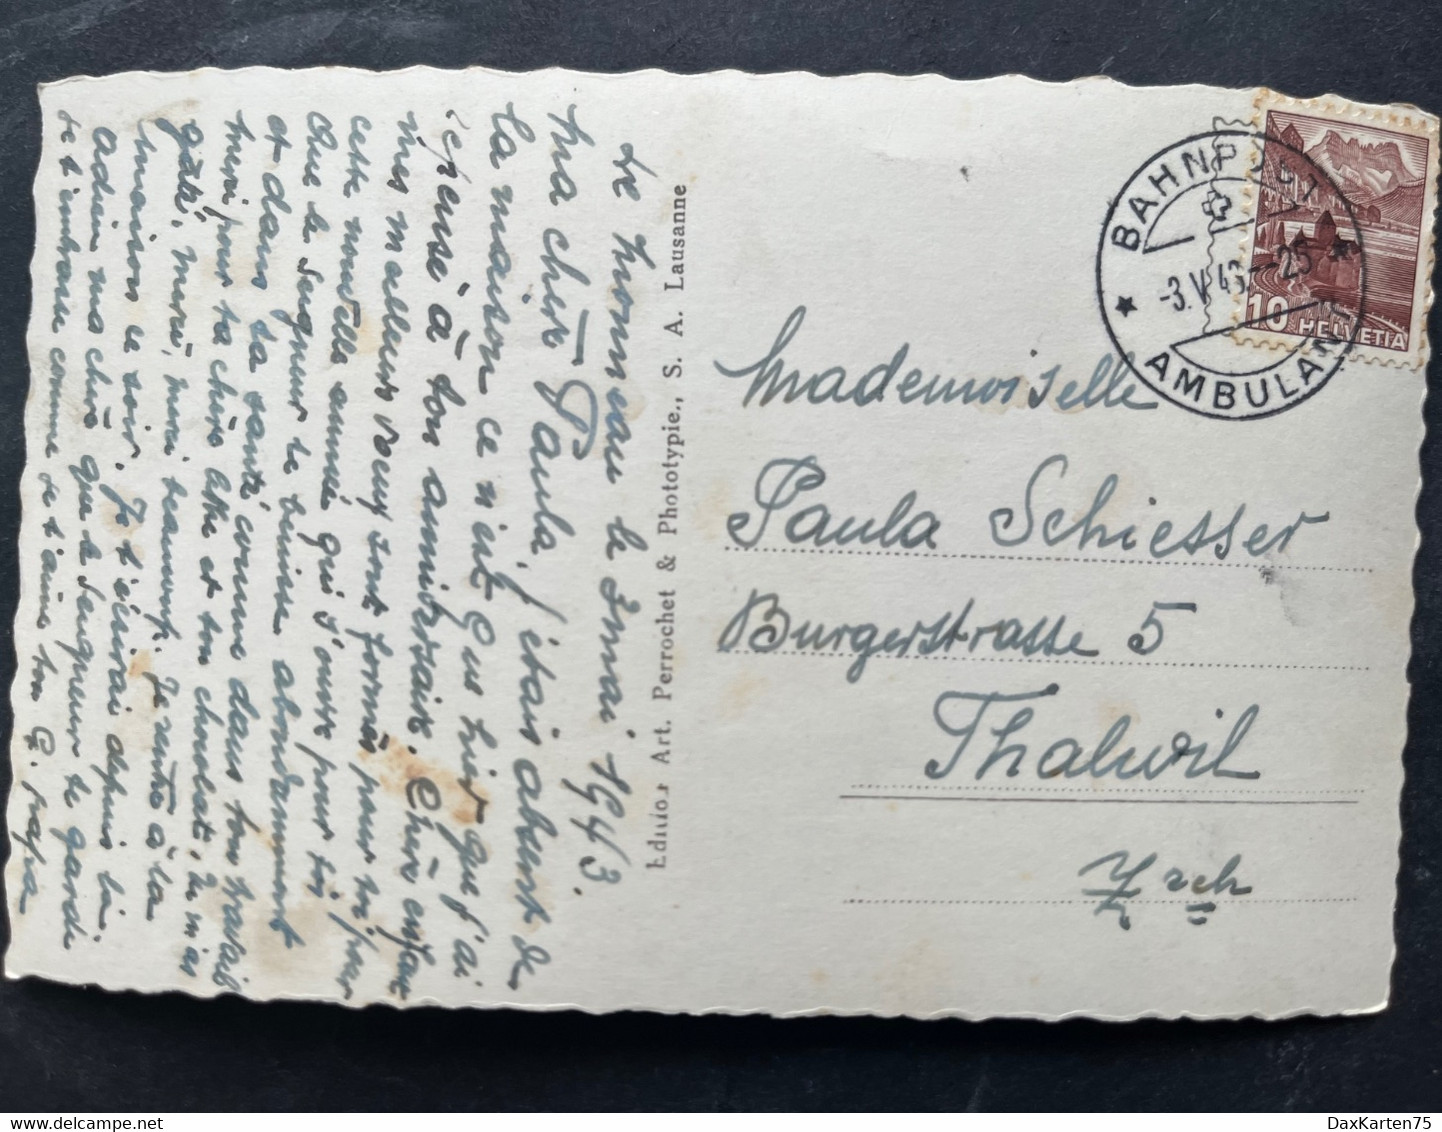 Le Nomeau le 3 mai 1943.
Ma chère Paula, j'étais absent de
la maison ce n'est que hier que j'ai
pensé à ton anniversaire. Chère enfant
mes meilleurs vœux sont formés pour toi pour
cette nouvelle année qui s'ouvre pour toi
Que le Seigneur te bénisse abondamment
et dans ta santé comme dans ton travail
Merci pour ta chère lettre et ton chocolat, tu m'as
gâté, merci, merci beaucoup. Je rentre à la
maison ce soir. Je t'écrirai depuis là.
Adieu ma chère que le Seigneur te garde
je t'embrasse comme je t'aime ton G. papa
Edition Art. Perrochet & Phototypie., S. A. Lausanne
BAHNPOST
-3.V.43.--25
AMBULANT
10 HELVETIA
Mademoiselle
Paula Schiesser
Burgerstrasse 5
Thalwil
Zrch
DaxKarten75